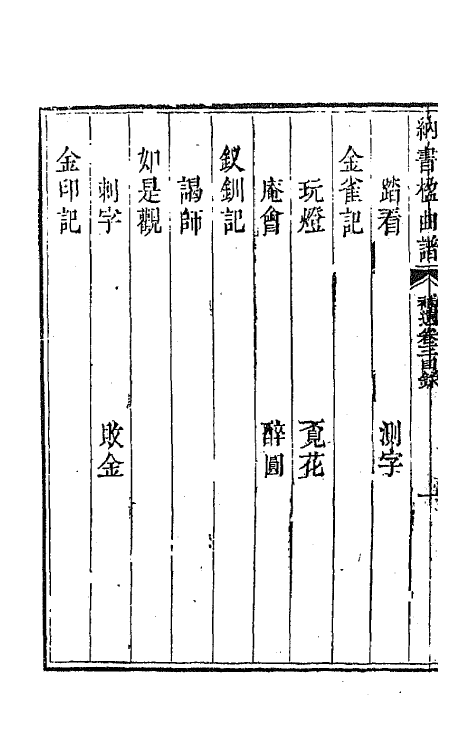 納書楹曲譜 補遺卷三目錄
踏看 測字
金雀記
玩燈 覓花
庵會 醉圓
釵釧記
謁師
如是觀
刺字 敗金
金印記